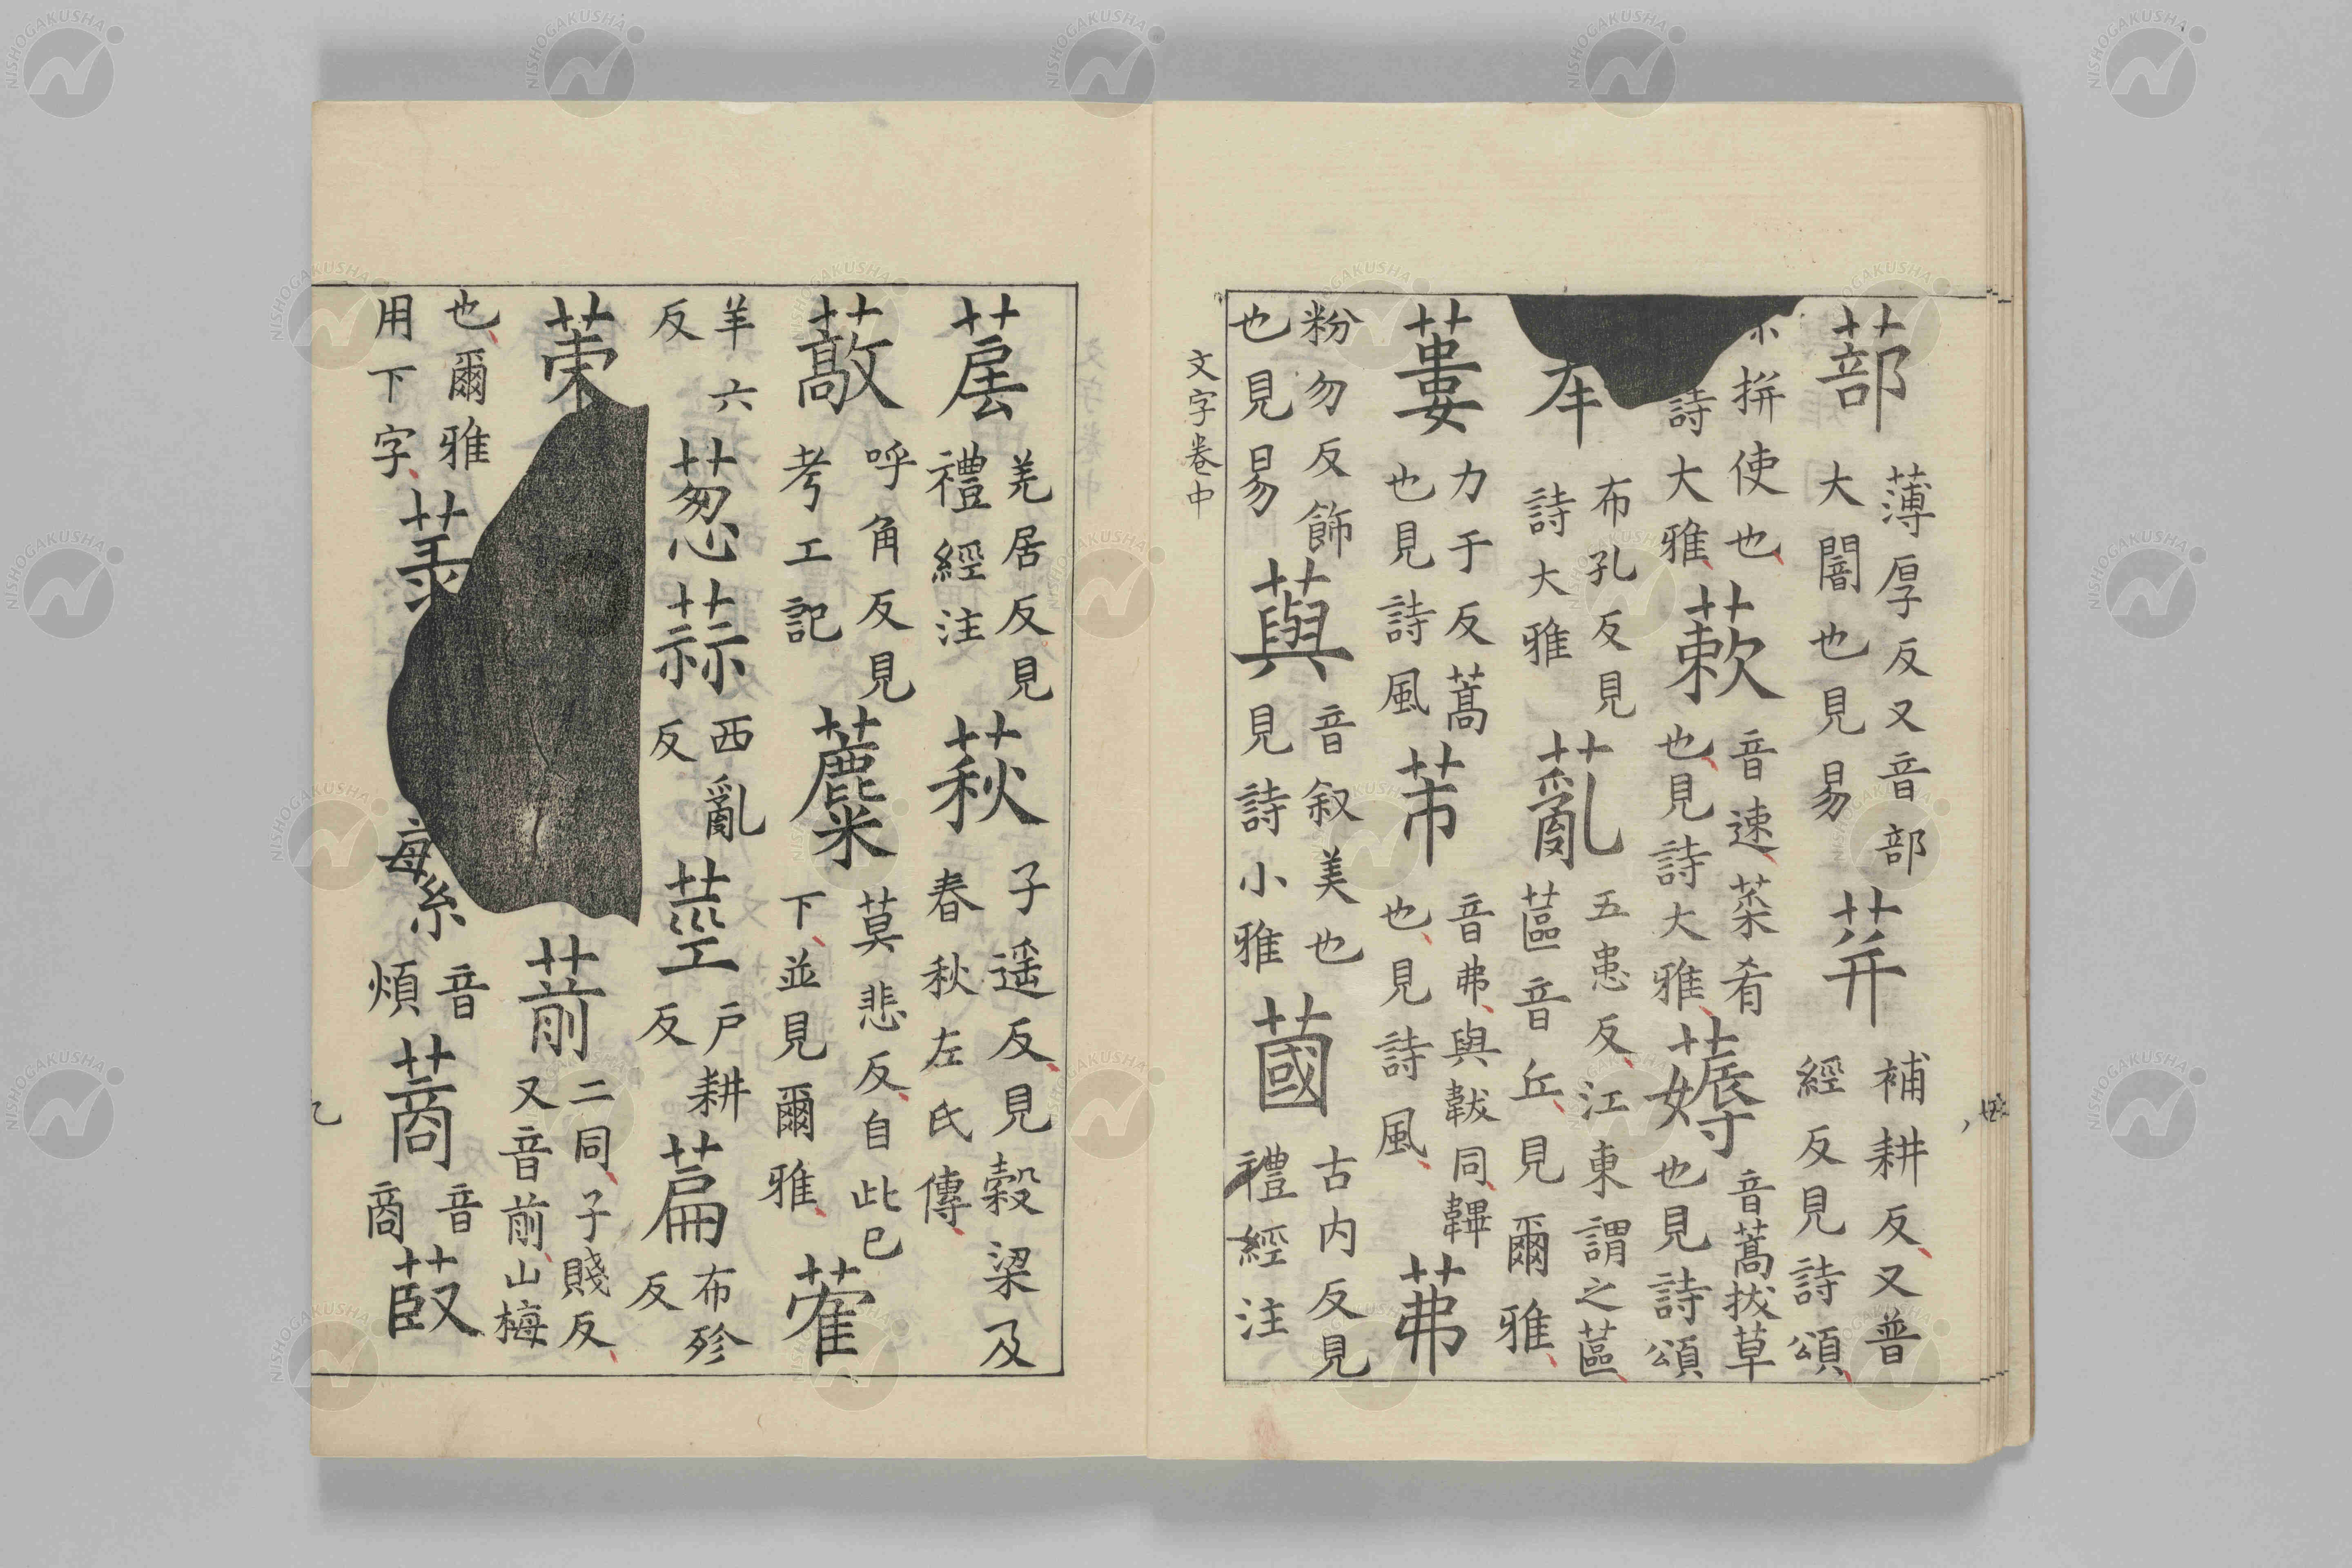 蔀 薄厚反又音部大闇也見易 荓 補耕反又普經反見詩頌
拼使也 詩大雅 蔌 音速菜肴也見詩大雅 薅 音蒿拔草也見詩頌
布孔反見詩大雅 薍 五患反江東謂之蓲蓲音丘見爾雅
蔞 力于反蒿也見詩風 芾 音弗與韍同韠也見詩風 茀
粉勿反飾也見易 藇 音叙美也見詩小雅 蔮 古内反見禮經注
文字卷中
羌居反見禮經注 萩 子遥反見穀梁及春秋左氏傳
藃 呼角反見考工記 蘪 莫悲反自此已下並見爾雅 蒮
羊六反 茐 蒜 西亂反 莖 戸耕反 萹 布殄反
葪 二同子賤反又音前山梅
也爾雅用下字 蘩 音煩 蔏 音商 菣
NISHOGAKUSHA